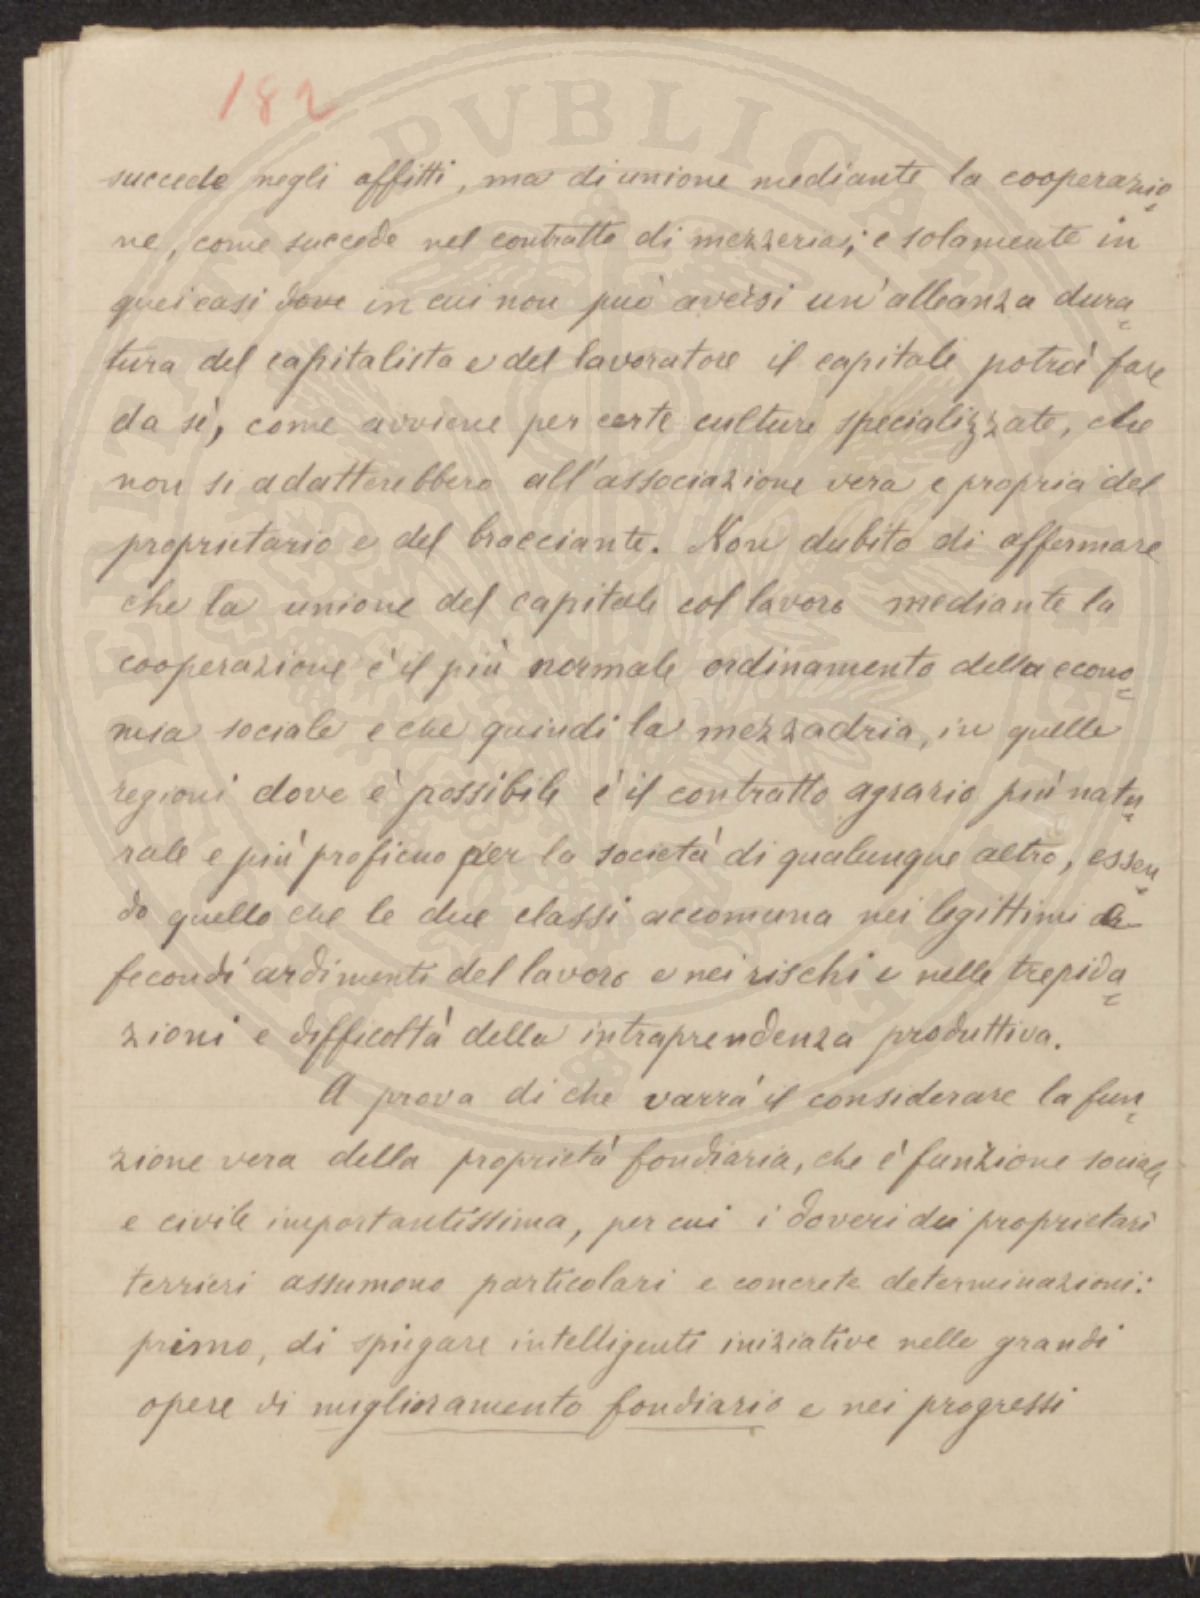 182
succede negli affitti, ma di unione mediante la cooperazio=
ne, come succede nel contratto di mezzeria; e solamente in
quei casi dove in cui non può aversi un'alleanza dura=
tura del capitalista e del lavoratore il capitale potrà fare
da sè, come avviene per certe culture specializzate, che
non si adatterebbero all'associazione vera e propria del
proprietario e del bracciante. Non dubito di affermare
che la unione del capitale col lavoro mediante la
cooperazione è il più normale ordinamento della econo=
mia sociale e che quindi la mezzadria, in quelle
regioni dove è possibile è il contratto agrario più natu=
rale e più proficuo per la società di qualunque altro, essen=
do quello che le due classi accomuna nei legittimi e
fecondi ardimenti del lavoro e nei rischi e nelle trepida=
zioni e difficoltà della intraprendenza produttiva.
A prova di che varrà il considerare la fun=
zione vera della proprietà fondiaria, che è funzione sociale
e civile importantissima, per cui i doveri dei proprietari
terrieri assumono particolari e concrete determinazioni:
primo, di spiegare intelligenti iniziative nelle grandi
opere di miglioramento fondiario e nei progressi